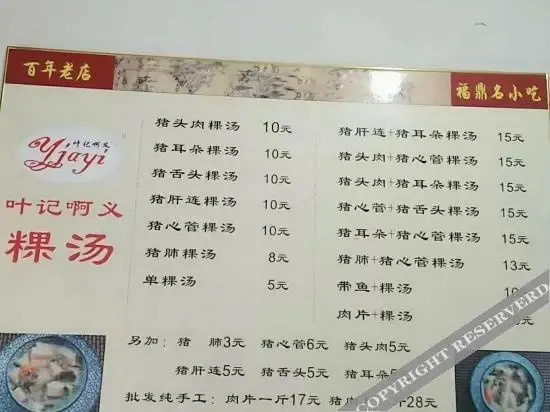 百年老店
福鼎名小吃
叶记啊义
yjayi
叶记啊义
粿汤
猪头肉粿汤 10元
猪耳朵粿汤 10元
猪舌头粿汤 10元
猪肝连粿汤 10元
猪心管粿汤 10元
猪肺粿汤 8元
单粿汤 5元
猪肝连+猪耳朵粿汤 15元
猪头肉+猪心管粿汤 15元
猪头肉+猪耳朵粿汤 15元
猪心管+猪舌头粿汤 15元
猪耳朵+猪心管粿汤 15元
猪肺+猪心管粿汤 13元
带鱼+粿汤
肉片+粿汤
另加：猪 肺3元 猪心管6元 猪头肉5元
猪肝连5元 猪舌头5元 猪耳朵5
批发纯手工：肉片一斤17元 猪肉 28元
COPYRIGHT RESERVED